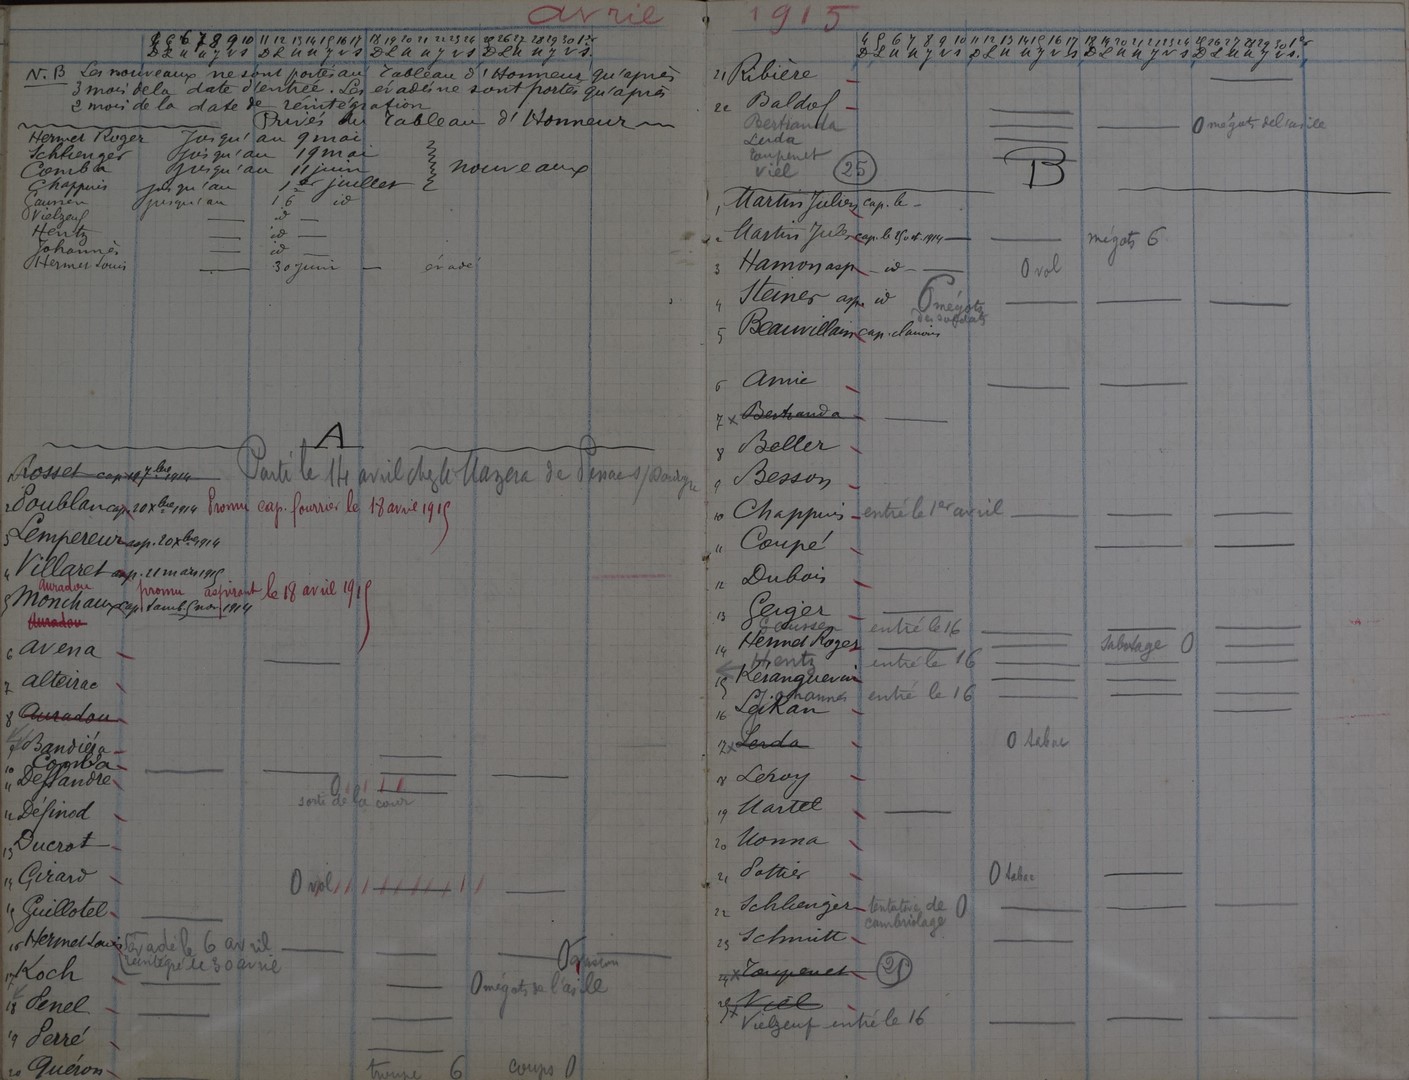 avril 1915
4 5 6 7 8 9 10 11 12 13 14 15 16 17 18 19 20 21 22 23 24 25 26 27 28 29 30 1er
D L M M J V S D L M M J V S D L M M J V S D L M M J V S
N.B Les nouveaux ne sont portés au Tableau d'Honneur qu'après
3 mois de la date d'entrée. Les évadés ne sont portés qu'après
2 mois de la date de réintégration
Privés du Tableau d'Honneur
Hermet Roger Jusqu'au 9 mai
Schlienger Jusqu'au 19 mai
Comba Jusqu'au 11 juin nouveaux
Chappuis jusqu'au 1er juillet
Gaussen jusqu'au 16 id
Vielzeuf id
Hentz id
Johannès id
Hermet Louis 30 juin évadé
A
1 Rosset cap 1914 Parti le 14 avril chez
2 Poublan cap. 20 Xbre 1914 Promu cap. fourrier le 18 avril 1915
3 Lempereur asp. 20 Xbre 1914
4 Villaret asp. 21 mars 1915
Auradou promu aspirant le 18 avril 1915
5 Monchaux cap. 1914
Auradou
6 Avena
7 Alteirac
8 Auradou
9 Bandiéra
10 Comba
11 Deffandre 0
sorti de la cour
12 Définod
13 Ducrot
14 Girard 0 vol
15 Guillotel
16 Hermet Louis Evadé le 6 avril 0
réintégré le 30 avril
17 Koch 0 mégots de l'asile
18 Penel
19 Perré
20 Quéron 6 coups 0
4 5 6 7 8 9 10 11 12 13 14 15 16 17 18 19 20 21 22 23 24 25 26 27 28 29 30 1er
D L M M J V S D L M M J V S D L M M J V S D L M M J V S.
21 Ribière
22 Baldof
Bertranda 0 mégots de l'asile
Lerda
Toupenet
Viel 25
B
1 Martin Julien cap. le
2 Martin Jules cap. le 1914 mégots 6
3 Hamon asp id 0 vol
4 Steiner asp. id 6 mégots
des soldats
5 Beauvillain cap. clairons
6 Amic
7 x Bertranda
8 Beller
9 Besson
10 Chappuis entré le 1er avril
11 Coupé
12 Dubois
13 Geiger
Gaussen entré le 16
14 Hermet Roger sabotage 0
Hentz entré le 16
15 Keranguevin
Johannès entré le 16
16 Lejkan
17 x Lerda 0 tabac
18 Leroy
19 Martel
20 Monna
21 Pottier 0 tabac
22 Schlienger tentative de 0
cambriolage
23 Schmitt
24 x Toupenet 25
25 x Viel
Vielzeuf entré le 16